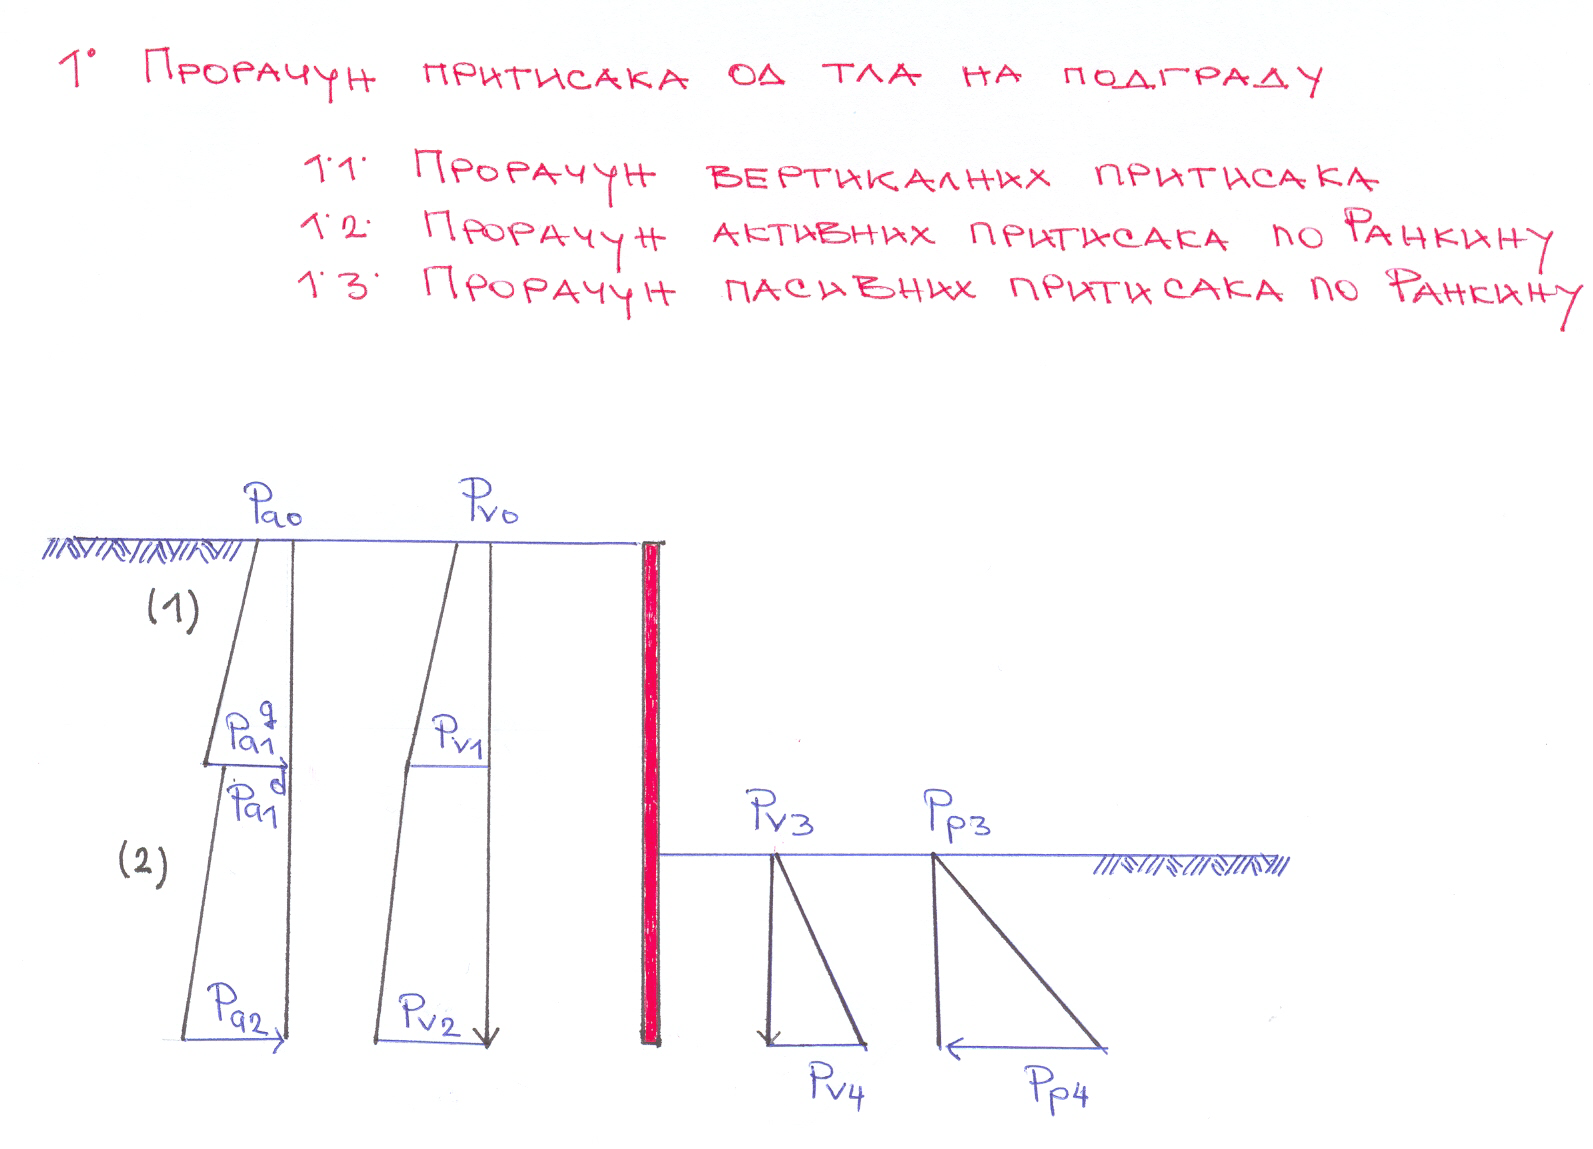 1° Прорачун притисака од тла на подграду
1.1. Прорачун вертикалних притисака
1.2. Прорачун активних притисака по Ранкину
1.3. Прорачун пасивних притисака по Ранкину
Pa0 Pv0
(1)
Pa1g Pv1
Pa1d
Pv3 Pp3
(2)
Pa2 Pv2
Pv4 Pp4